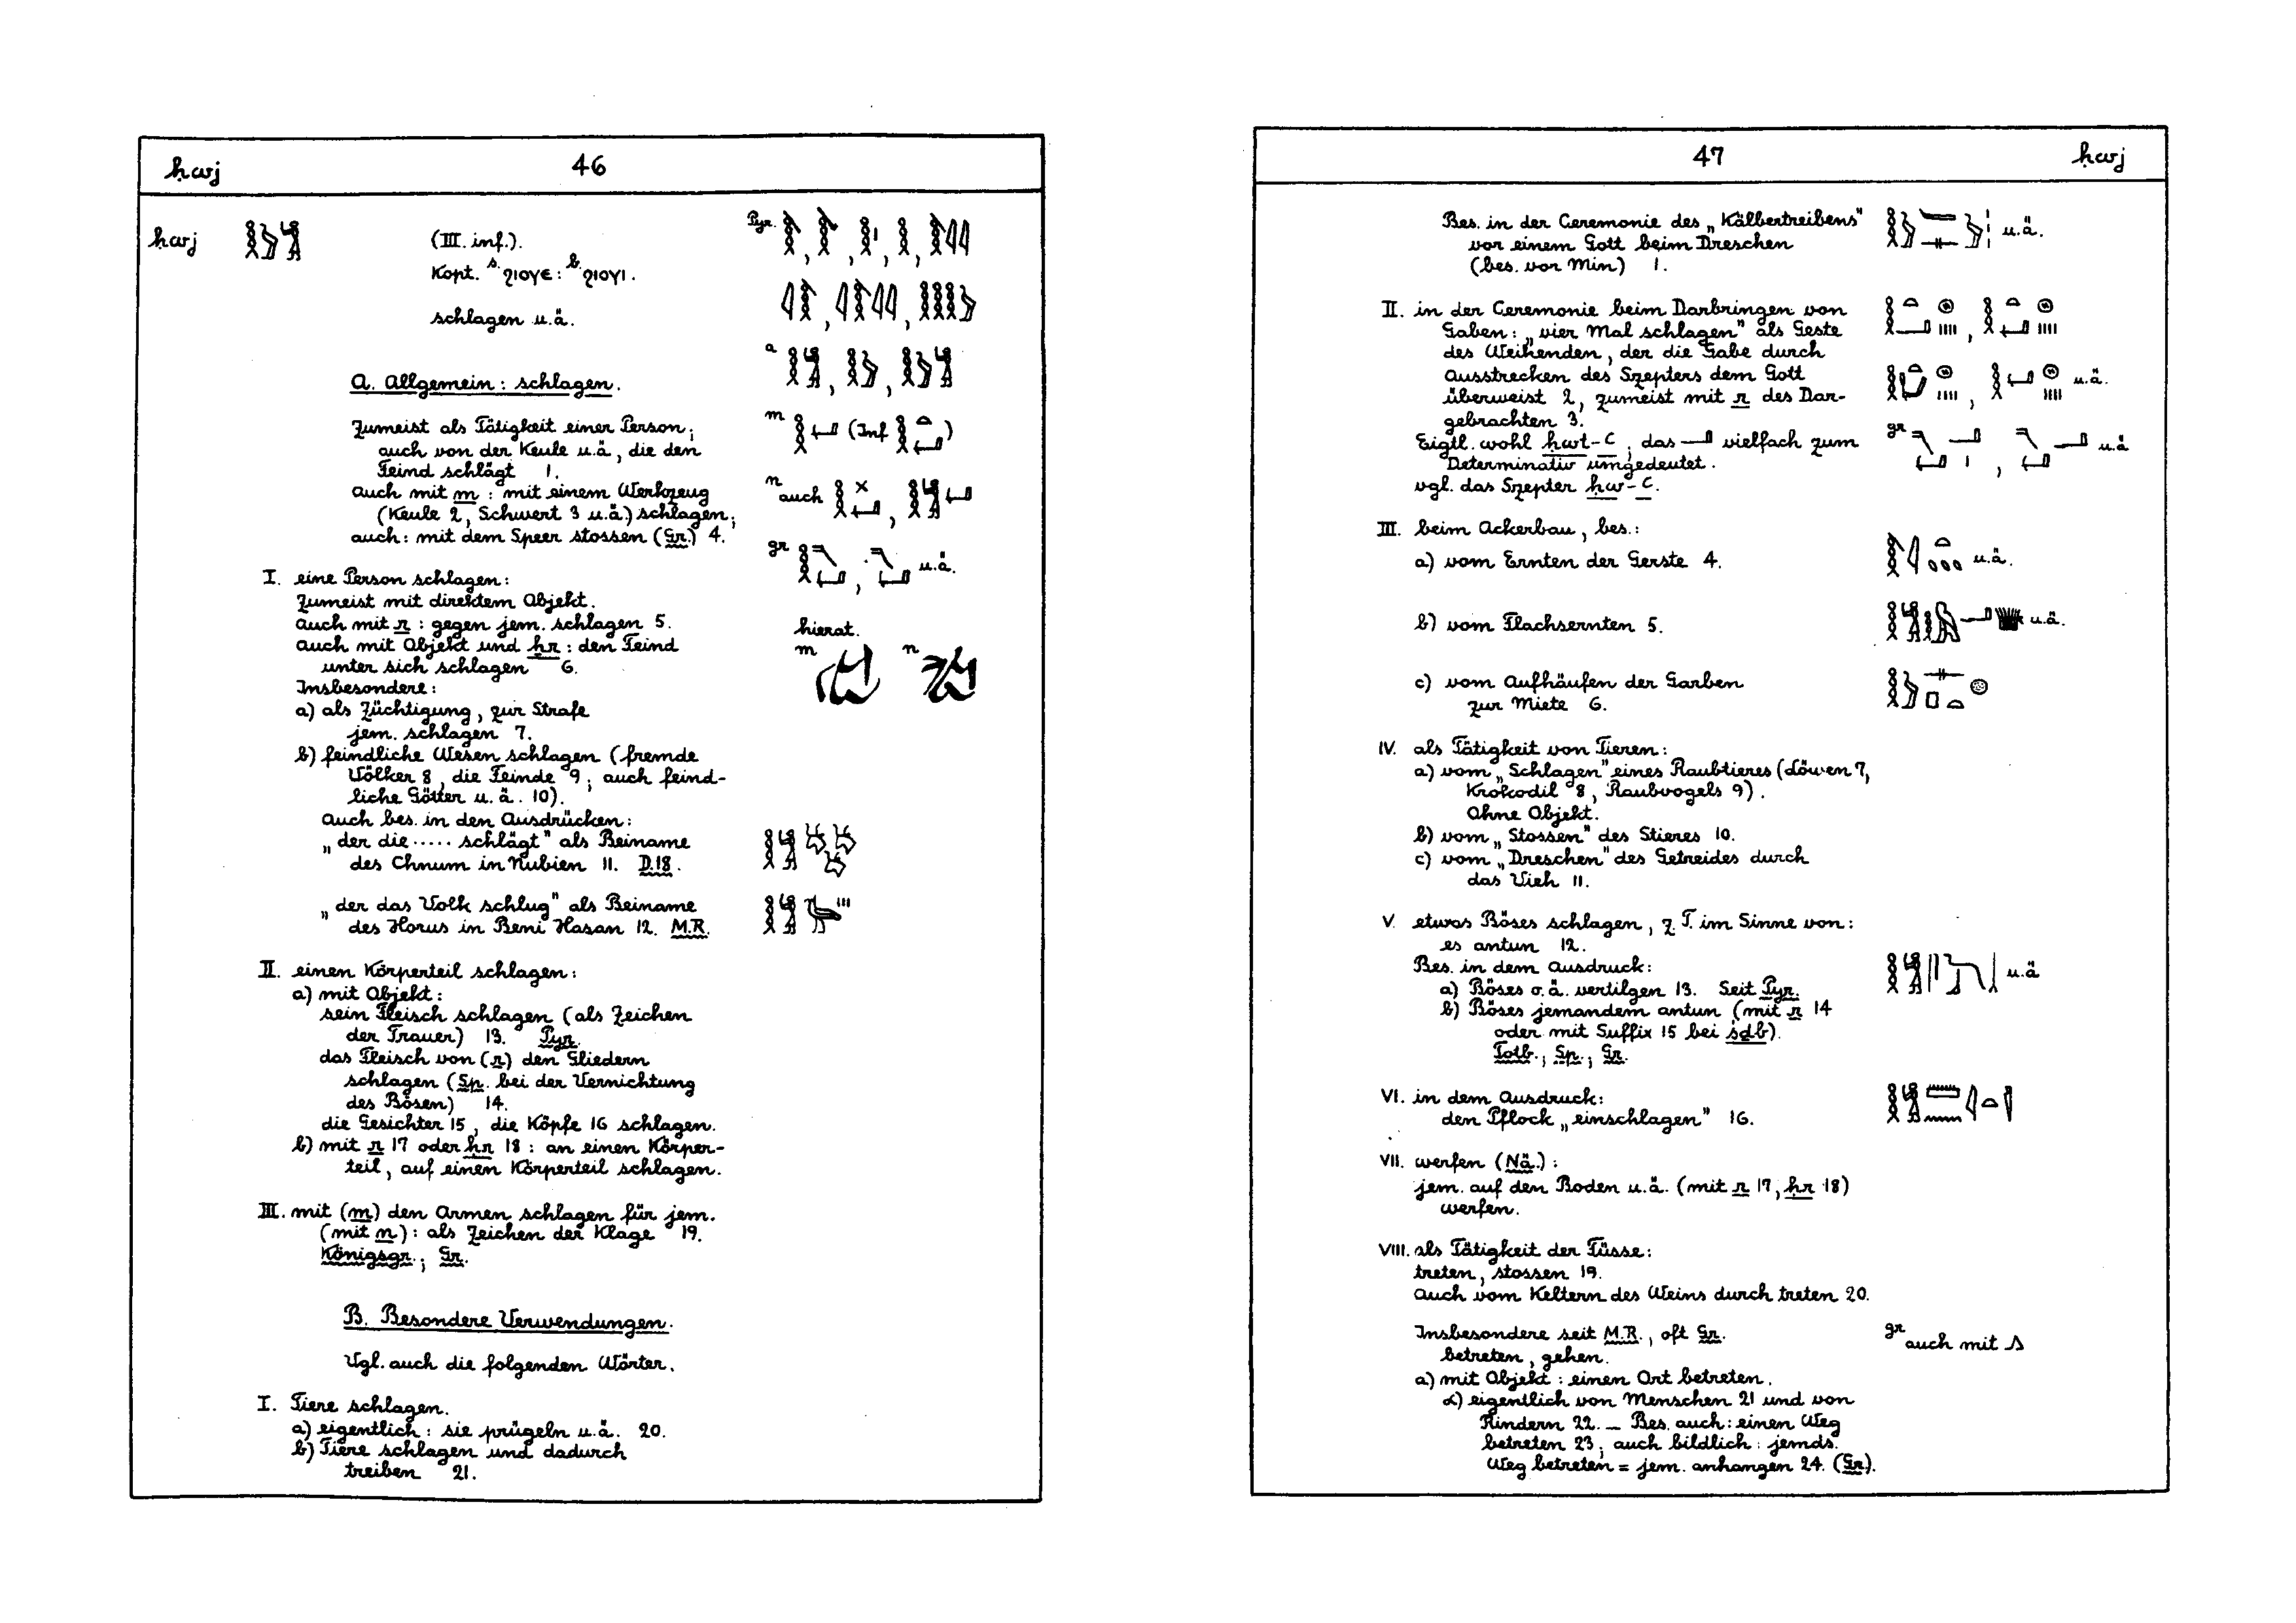 ḥwj 46
ḥwj (III. inf.). Pyr.
Kopt. s. ϩⲓⲟⲩⲉ: b. ϩⲓⲟⲩⲓ.
schlagen u.ä.
a
A. Allgemein: schlagen.
m (Inf )
n auch
gr u.ä.
hierat.
m n
Zumeist als Tätigkeit einer Person;
auch von der Keule u.ä, die den
Feind schlägt 1.
auch mit m : mit einem Werkzeug
(Keule 2, Schwert 3 u.ä.) schlagen;
auch: mit dem Speer stossen (Gr.) 4.
I. eine Person schlagen:
Zumeist mit direktem Objekt.
auch mit r : gegen jem. schlagen 5.
auch mit Objekt und ẖr : den Feind
unter sich schlagen 6.
Insbesondere:
a) als Züchtigung, zur Strafe
jem. schlagen 7.
b) feindliche Wesen schlagen (fremde
Völker 8, die Feinde 9; auch feind-
liche Götter u.ä. 10).
Auch bes. in den Ausdrücken:
„der die ..... schlägt" als Beiname
des Chnum in Nubien 11. D.18.
„der das Volk schlug" als Beiname
des Horus in Beni Hasan 12. M.R.
II. einen Körperteil schlagen:
a) mit Objekt:
sein Fleisch schlagen (als Zeichen
der Trauer) 13. Pyr.
das Fleisch von (r) den Gliedern
schlagen (Sp. bei der Vernichtung
des Bösen) 14.
die Gesichter 15, die Köpfe 16 schlagen.
b) mit r 17 oder ḥr 18 : an einen Körper-
teil, auf einen Körperteil schlagen.
III. mit (m) den Armen schlagen für jem.
(mit n): als Zeichen der Klage 19.
Königsgr.; Gr.
B. Besondere Verwendungen.
Vgl. auch die folgenden Wörter.
I. Tiere schlagen.
a) eigentlich: sie prügeln u.ä. 20.
b) Tiere schlagen und dadurch
treiben 21.
47 ḥwj
Bes. in der Ceremonie des „Kälbertreibens" u.ä.
vor einem Gott beim Dreschen
(bes. vor Min) 1.
II. in der Ceremonie beim Darbringen von
Gaben: „vier Mal schlagen" als Geste
des Weihenden, der die Gabe durch
Ausstrecken des Szepters dem Gott u.ä.
überweist 2, zumeist mit r des Dar-
gebrachten 3.
Eigtl. wohl ḥwt-ꜥ; das vielfach zum gr u.ä
Determinativ umgedeutet.
vgl. das Szepter ḥw-ꜥ.
III. beim Ackerbau, bes.:
a) vom Ernten der Gerste 4. u.ä.
b) vom Flachsernten 5. u.ä.
c) vom Aufhäufen der Garben
zur Miete 6.
IV. als Tätigkeit von Tieren:
a) vom „Schlagen" eines Raubtieres (Löwen 7,
Krokodil 8, Raubvogels 9).
Ohne Objekt.
b) vom „Stossen" des Stieres 10.
c) vom „Dreschen" des Getreides durch
das Vieh 11.
V. etwas Böses schlagen, z.T. im Sinne von:
es antun 12.
Bes. in dem Ausdruck: u.ä
a) Böses o.ä. vertilgen 13. Seit Pyr.
b) Böses jemandem antun (mit r 14
oder mit Suffix 15 bei śdb).
Totb.; Sp.; Gr.
VI. in dem Ausdruck:
den Pflock „einschlagen" 16.
VII. werfen (Nä.):
jem. auf den Boden u.ä. (mit r 17, ḥr 18)
werfen.
VIII. als Tätigkeit der Füsse:
treten, stossen 19.
auch vom Keltern des Weins durch treten 20.
Insbesondere seit M.R., oft Gr. gr auch mit
betreten, gehen.
a) mit Objekt: einen Ort betreten.
α) eigentlich von Menschen 21 und von
Rindern 22. — Bes. auch: einen Weg
betreten 23; auch bildlich: jemds.
Weg betreten = jem. anhangen 24. (Gr.).